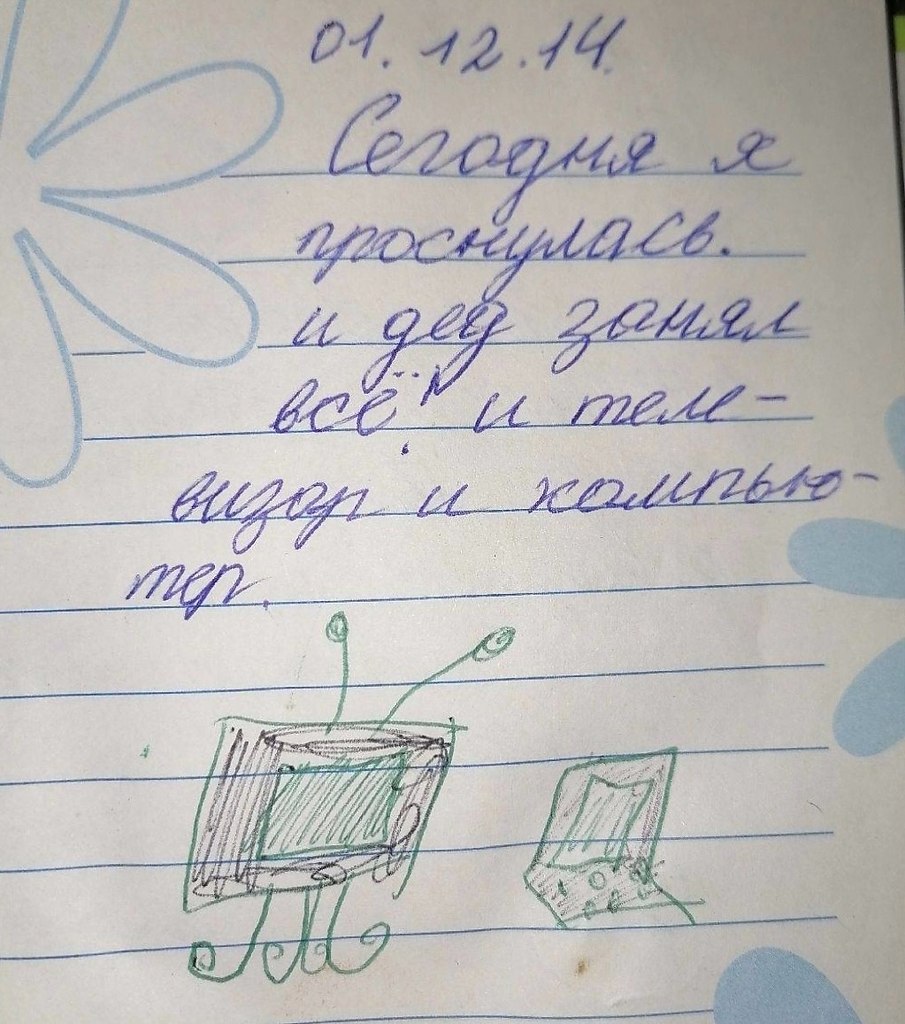 01.12.14.
Сегодня я
проснулась.
и дед занял
всё! и теле-
визор и компью-
тер.